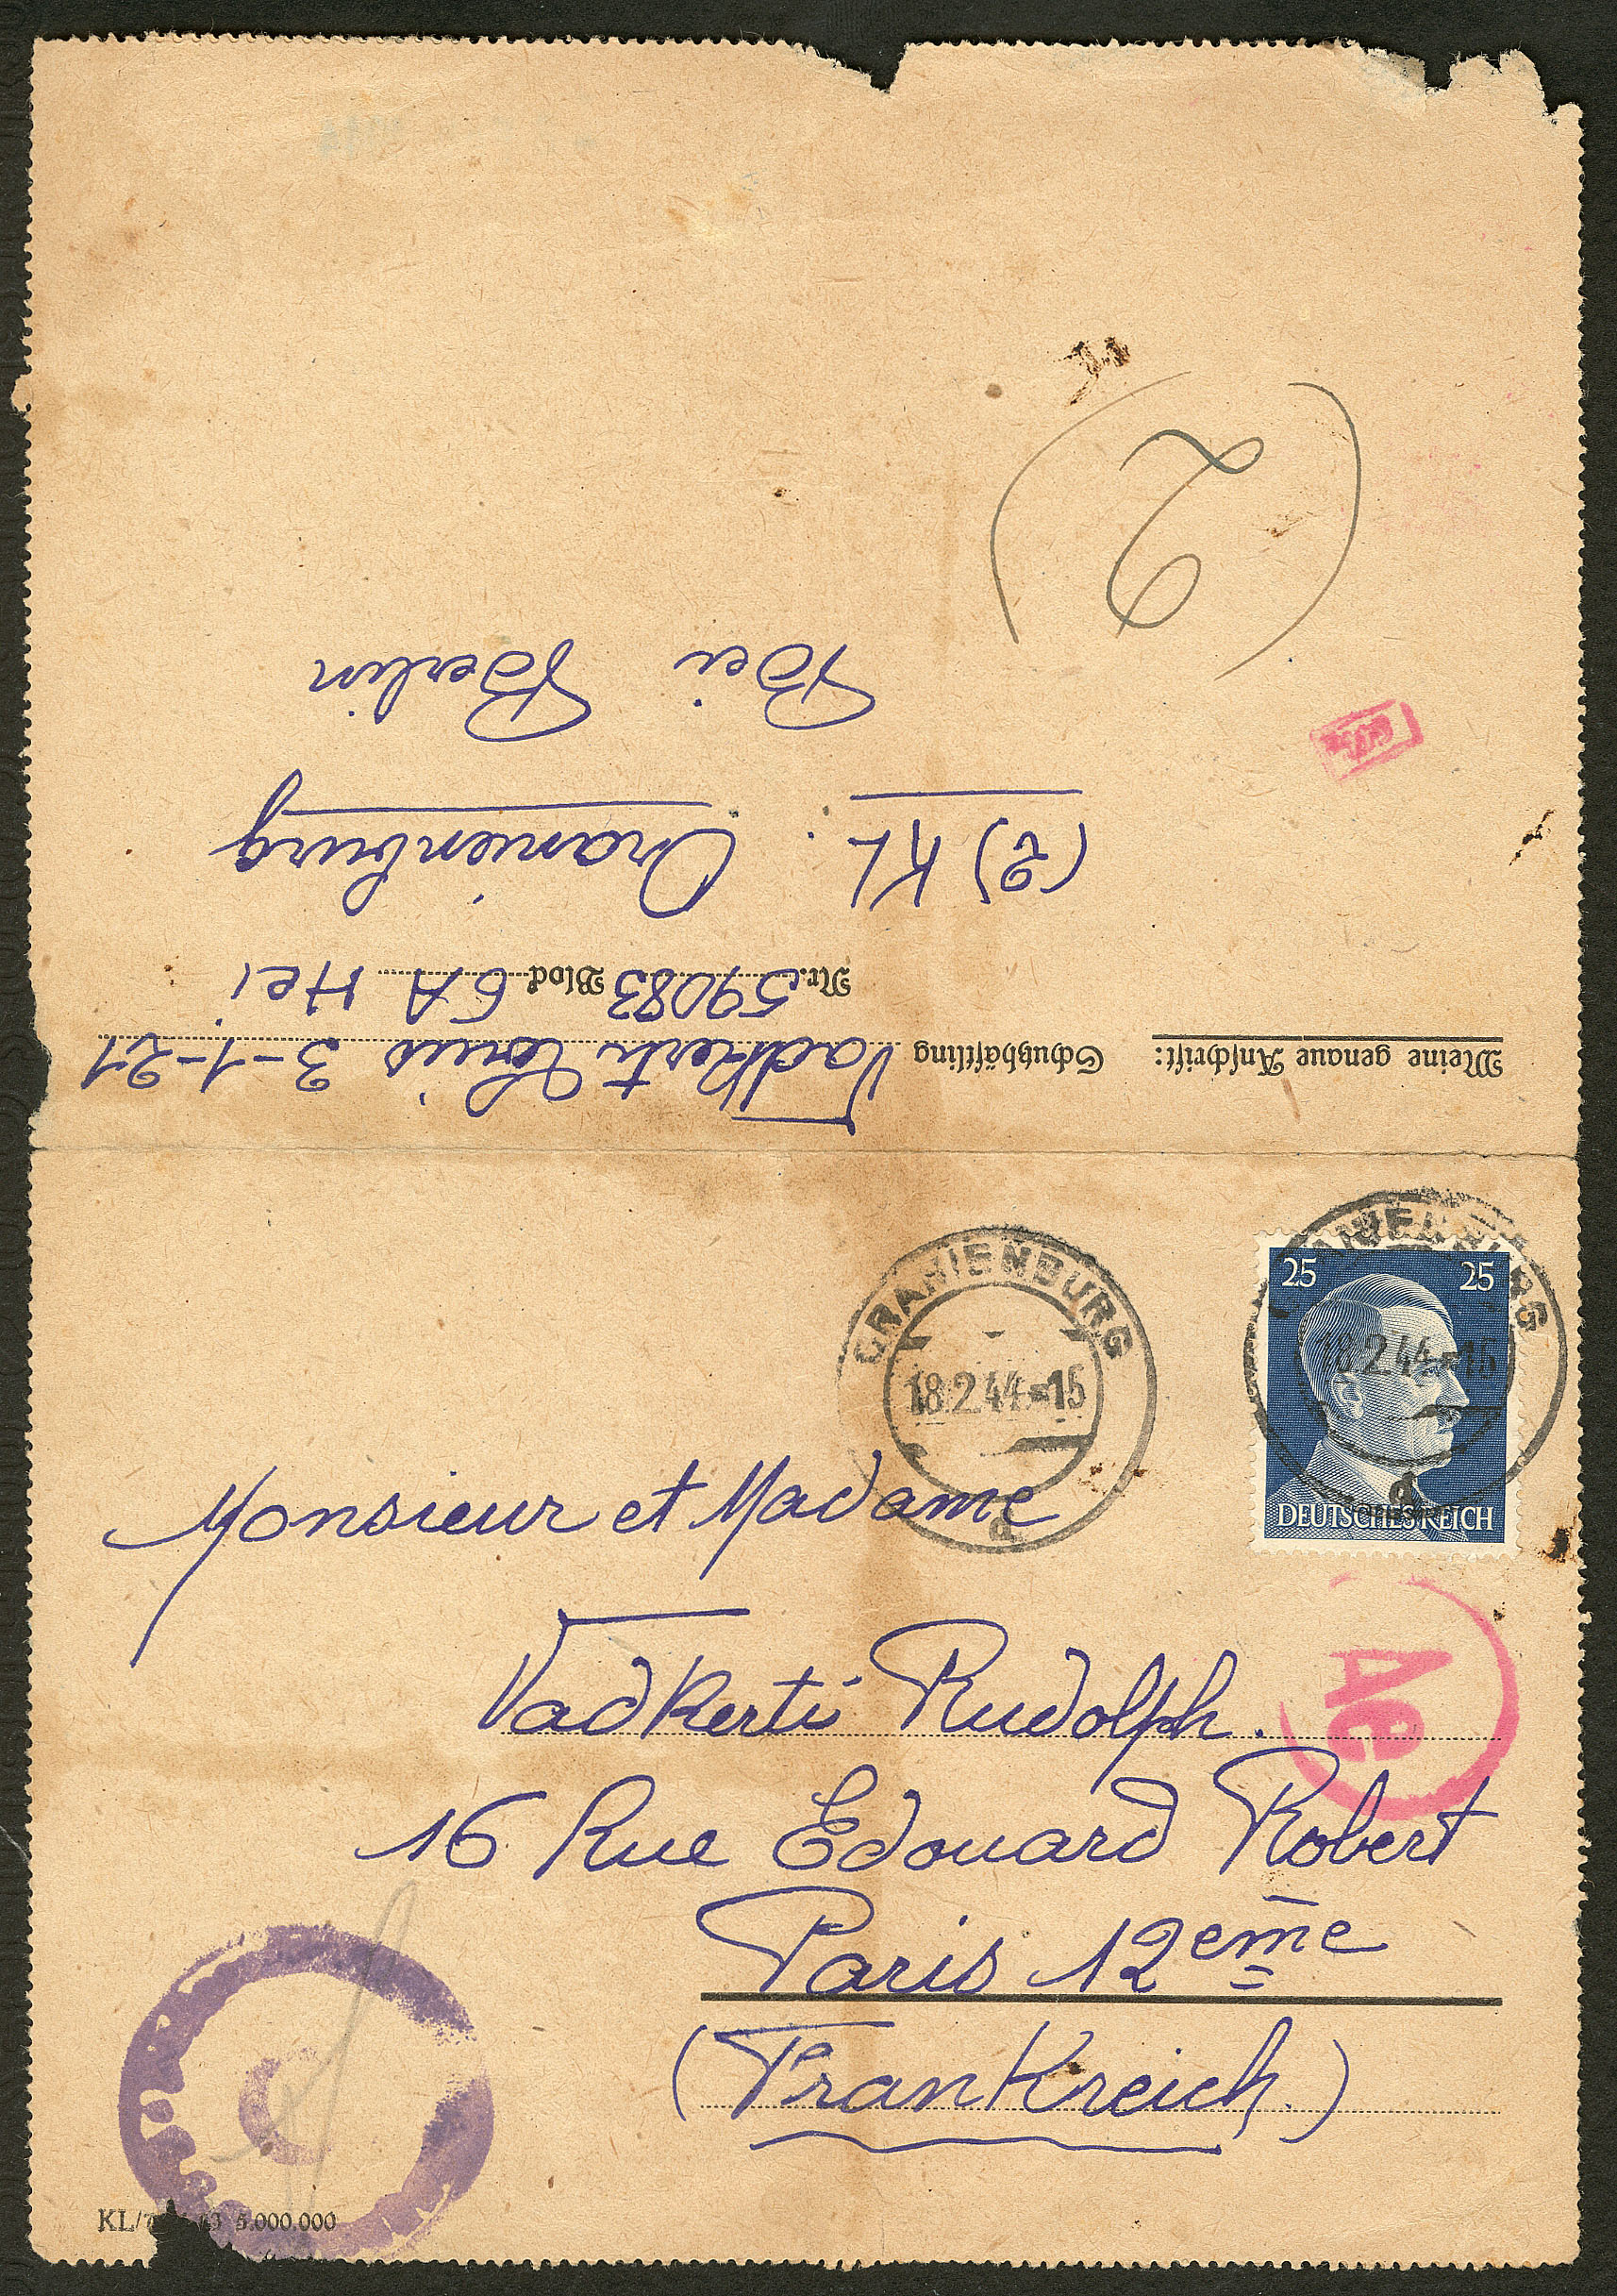 Meine genaue Anschrift: Schutzhäftling Vadkerti Louis 3-1-21
Nr. 59083 Block 6A Hei
(2) KL. Oranienburg
Bei Berlin
(2)
ORANIENBURG
18.2.44-15
d
25 25
DEUTSCHES REICH
ORANIENBURG
18.2.44-15
d
Monsieur et Madame
Vadkerti Rudolph.
Ae
16 Rue Edouard Robert
Paris 12eme
(Frankreich.)
KL/ 43 5.000.000